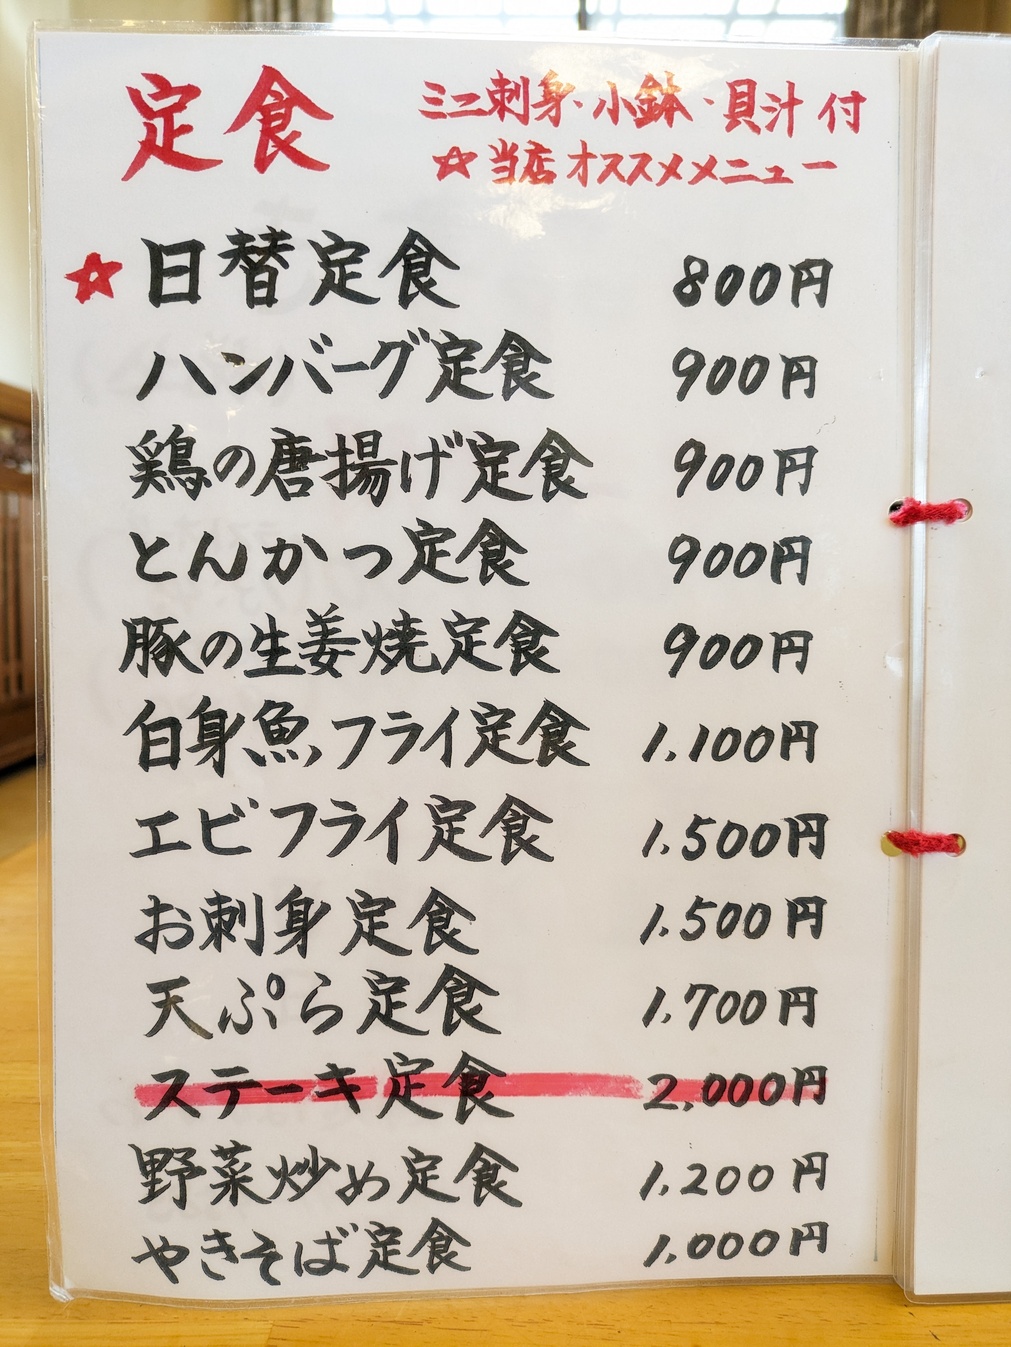 定食
ミニ刺身・小鉢・貝汁付
☆当店オススメメニュー
☆日替定食 800円
ハンバーグ定食 900円
鶏の唐揚げ定食 900円
とんかつ定食 900円
豚の生姜焼定食 900円
白身魚フライ定食 1,100円
エビフライ定食 1,500円
お刺身定食 1,500円
天ぷら定食 1,700円
ステーキ定食 2,000円
野菜炒め定食 1,200円
やきそば定食 1,000円